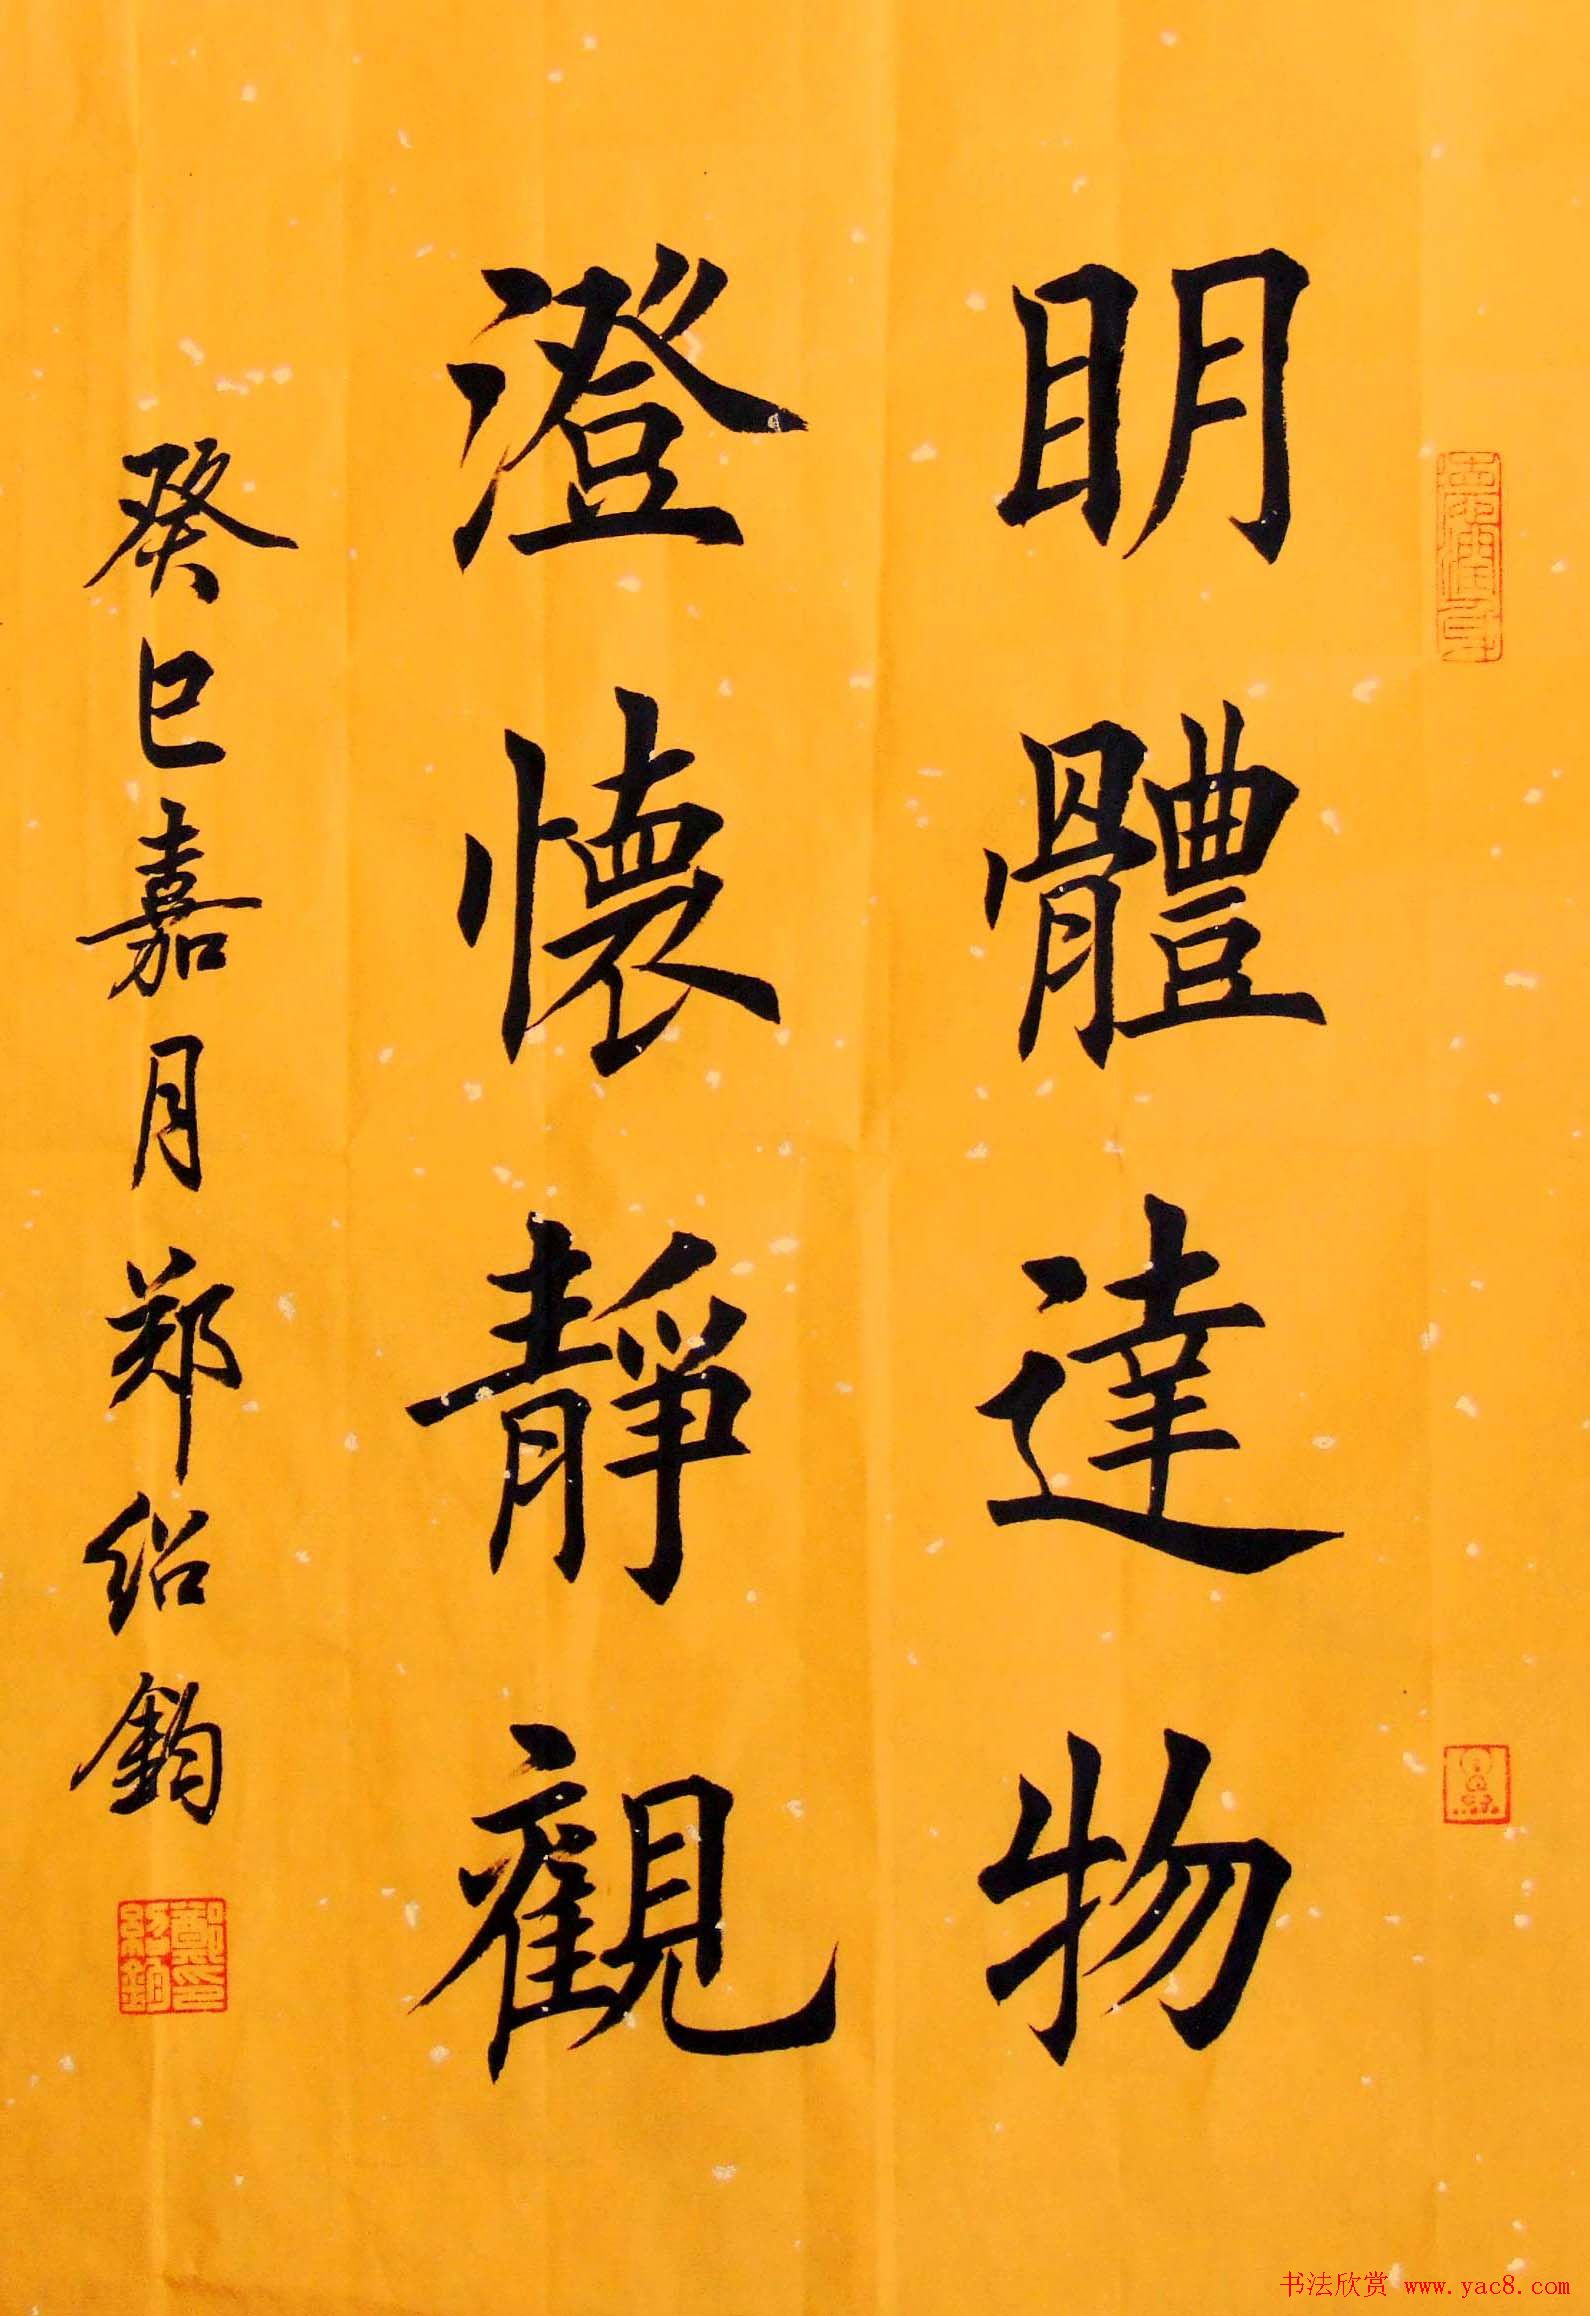 明體達物
澄懷靜觀
癸巳嘉月郑绍鈞
鄭紹鈞印
书法欣赏 www.yac8.com